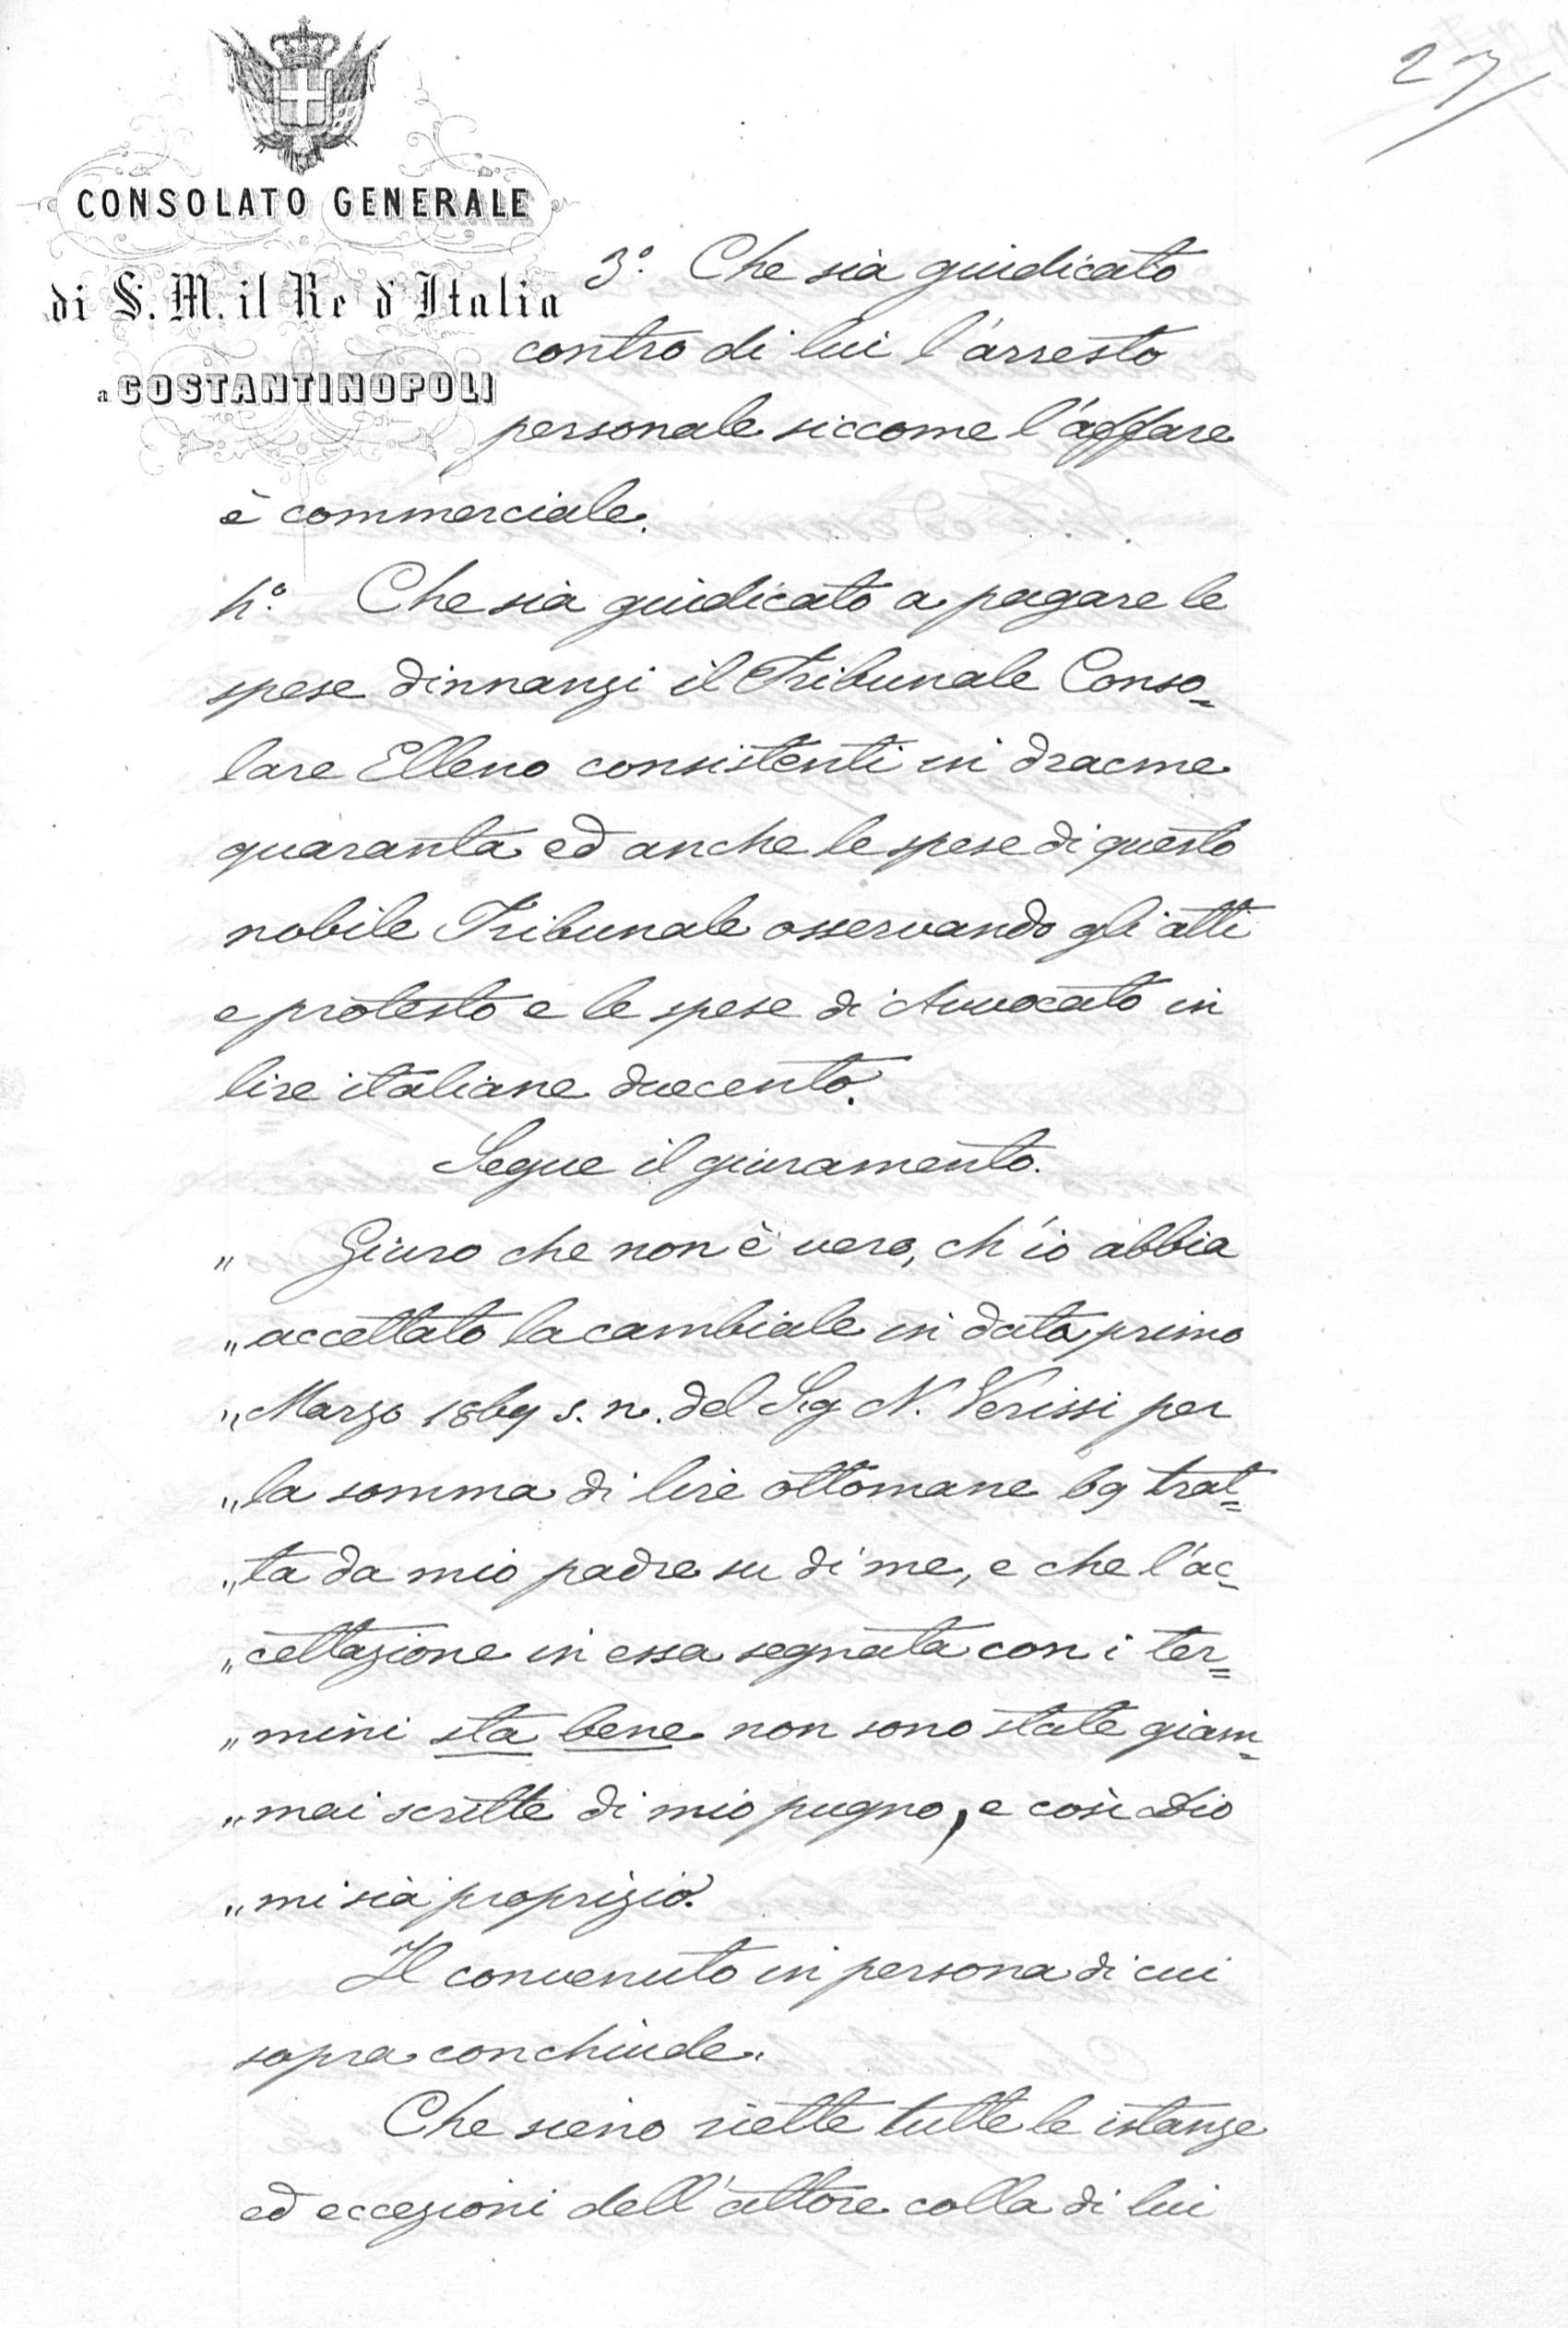 27
CONSOLATO GENERALE
di S. M. il Re d'Italia
a COSTANTINOPOLI
3º. Che sia giudicato
contro di lui l'arresto
personale siccome l'affare
è commerciale.
4º. Che sia giudicato a pagare le
spese dinnanzi il Tribunale Conso=
lare Elleno consistenti in dracme
quaranta ed anche le spese di questo
nobile Tribunale osservando gli atti
e protesto e le spese di Avvocato in
lire italiane duecento.
Segue il giuramento.
" Giuro che non è vero, ch'io abbia
" accettato la cambiale in data primo
" Marzo 1869 s. n. del Sig N. Verissi per
" la somma di lire ottomane 69 trat=
" ta da mio padre su di me, e che l'ac=
" cettazione in essa segnata con i ter=
" mini sta bene non sono state giam=
" mai scritte di mio pugno, e così Dio
" mi sia proprizio.
Il convenuto in persona di cui
sopra conchiude.
Che sieno riette tutte le istanze
ed eccezioni dell'attore colla di lui